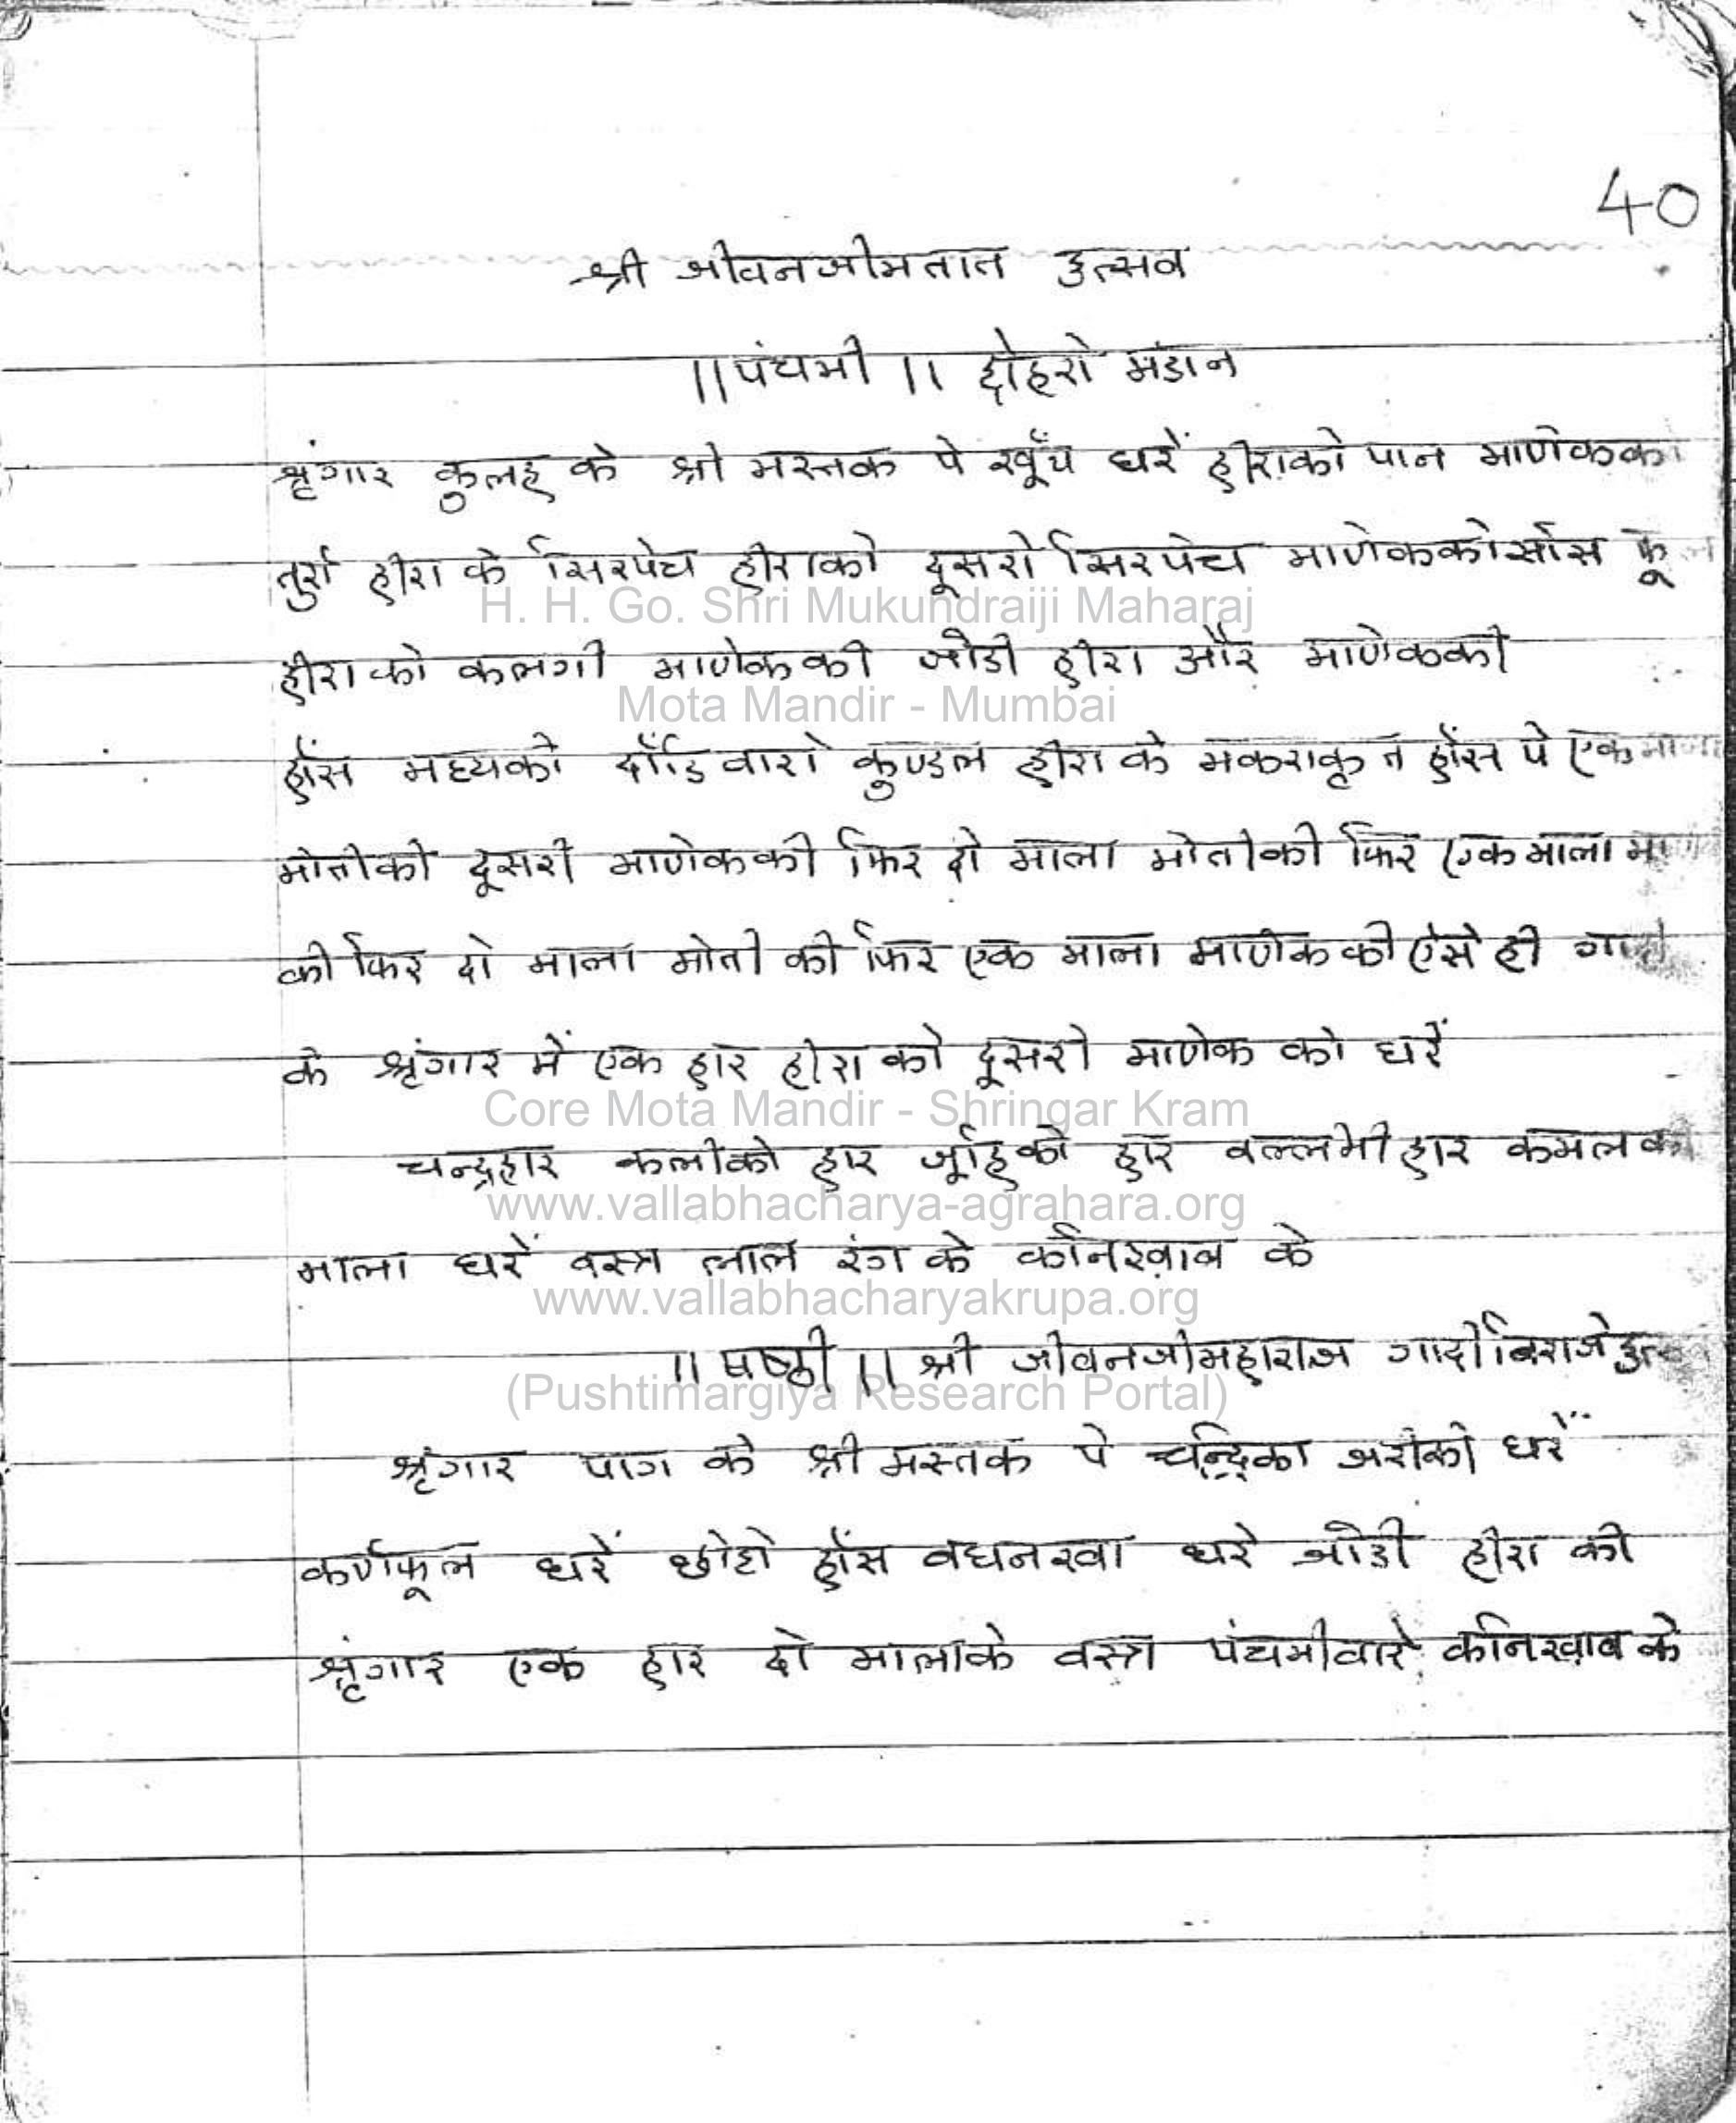 40
श्री जीवनजीमतात उत्सव
॥पंचमी॥ दोहरो मंडान
श्रृंगार कुलह के श्री मस्तक पे खूँप धरें हीराको पान माणेकका
तुर्रा हीरा के सिरपेच हीराको दूसरो सिरपेच माणेकको सीस फूल
H. H. Go. Shri Mukundraiji Maharaj
हीरा को कलगी माणेक की जोडी हीरा और माणेककी
Mota Mandir - Mumbai
हाँस मध्यको दाँडि वारो कुण्डल हीरा के मकराकृत हाँस पे एक माला
मोतीकी दूसरी माणेककी फिर दो माला मोतीकी फिर एक माला
की फिर दो माला मोती की फिर एक माला माणेक की ऐसे ही
के श्रृंगार में एक हार हीरा को दूसरो माणेक को धरें
Core Mota Mandir - Shringar Kram
चन्द्रहार कलीको हार जूहिको हार वल्लभी हार कमल की
www.vallabhacharya-agrahara.org
माला धरें वस्त्र लाल रंग के कीनखाब के
www.vallabhacharyakrupa.org
॥ षष्ठी ॥ श्री जीवनजीमहाराज गादी बिराजे
(Pushtimargiya Research Portal)
श्रृंगार पाग के श्री मस्तक पे चन्द्रिका जरीकी धरें
कर्णफूल धरें छोटो हाँस वघनखा धरे जोडी हीरा की
श्रृंगार एक हार दो मालाके वस्त्र पंचमीवारे कीनखाब के